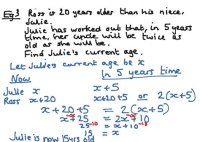 Eg3 Ross is 20 years older than his niece,
Julie.
Julie has worked out that, in 5 years
time, her uncle will be twice as
old as she will be.
Find Julie's current age.
Let Julie's current age be x
Now In 5 years time
Julie x x+5
Ross x+20 x+20+5 or 2(x+5)
x+20+5 = 2(x+5)
x+25 = 2x+10
-x -10 -x -10
15 = x
Julie is now 15 yrs old